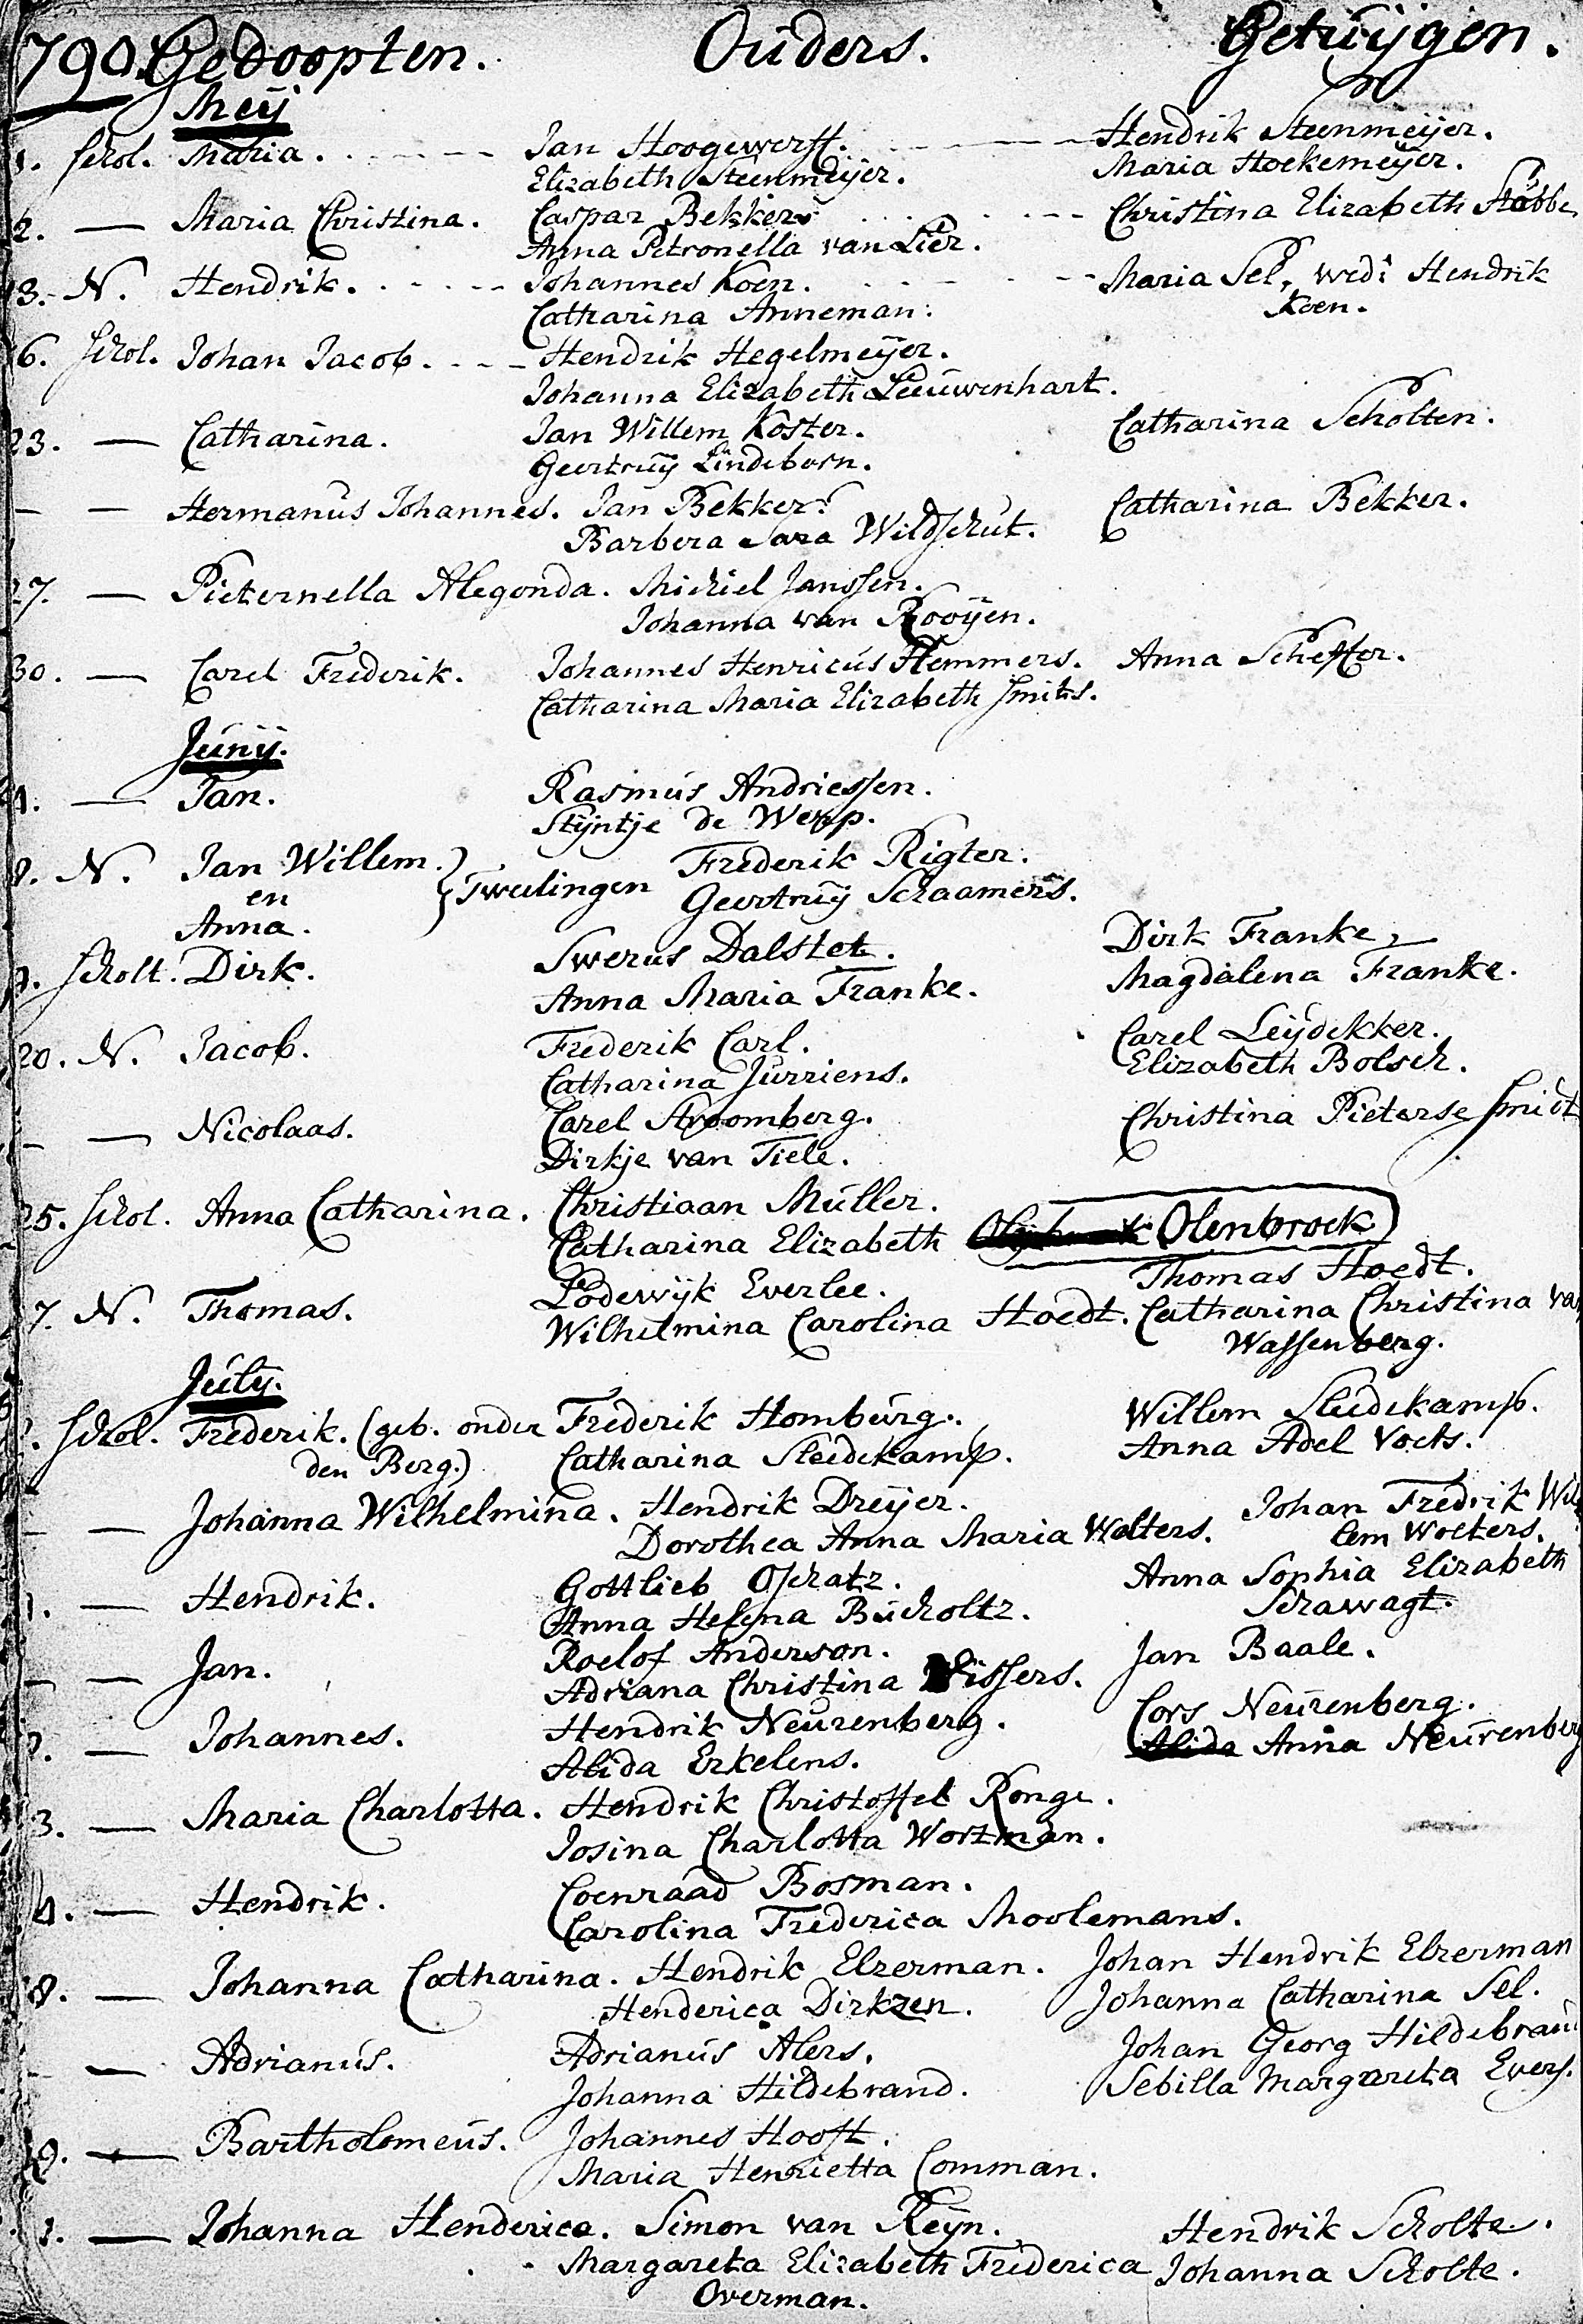 790. Gedoopten. Ouders. Getuijgen.
Meij
1. Schol. Maria. Jan Hoogewerff. Hendrik Steenmeijer.
Elizabeth Steenmeijer. Maria Hoekemeijer.
2. — Maria Christina. Caspar Bekker. Christina Elizabeth
Anna Petronella van Lier.
13. N. Hendrik. Johannes Koen. Maria Sel, wed: Hendrik
Catharina Anneman. Koen.
16. Schol. Johan Jacob. Hendrik Hegelmeijer.
Johanna Elizabeth Leeuwenhart.
23. — Catharina. Jan Willem Koster. Catharina Scholten.
Geertruij Lindeborn.
— — Hermanus Johannes. Jan Bekker. Catharina Bekker.
Barbera Sara Wildschut.
27. — Pieternella Alegonda. Michiel Janssen.
Johanna van Rooijen.
30. — Carel Frederik. Johannes Henricus Hemmers. Anna Scheffer.
Catharina Maria Elizabeth Smits.
Junij.
— Jan. Rasmus Andriessen.
Stijntje de Werp.
N. Jan Willem. } Tweelingen Frederik Rigter.
en Geertruij Schaamers.
Anna.
9. Scholt. Dirk. Swerus Dalstet. Dirk Franke,
Anna Maria Franke. Magdalena Franke.
20. N. Jacob. Frederik Carl. Carel Leijdekker.
Catharina Jurriens. Elizabeth Bolsch.
— — Nicolaas. Carel Stroomberg. Christina Pieterse Smidt
Dirkje van Tiele.
25. Schol. Anna Catharina. Christiaan Muller.
Catharina Elizabeth Olenbroek
7. N. Thomas. Lodewijk Everlee. Thomas Hoedt.
Wilhelmina Carolina Hoedt. Catharina Christina van
Wassenberg.
July.
Schol. Frederik. (geb. onder Frederik Homburg. Willem Sledekamp.
den Berg.) Catharina Sledekamp. Anna Adel Voets.
— — Johanna Wilhelmina. Hendrik Dreijer. Johan Fredrik Wil
Dorothea Anna Maria Wolters. lem Wolters.
— Hendrik. Gottlieb Opchatz. Anna Sophia Elizabeth
Anna Helena Bucholtz. Schawagt.
— — Jan. Roelof Anderson. Jan Baale.
Adriana Christina Vissers.
— Johannes. Hendrik Neurenberg. Cors Neurenberg.
Alida Erkelens. Alida Anna Neurenberg
13. — Maria Charlotta. Hendrik Christoffel Ronge.
Josina Charlotta Wortman.
— Hendrik. Coenraad Bosman.
Carolina Frederica Moolemans.
18. — Johanna Catharina. Hendrik Elzerman. Johan Hendrik Elzerman
Henderica Dirkzen. Johanna Catharina Sel.
— — Adrianus. Adrianus Alers. Johan Georg Hildebrand
Johanna Hildebrand. Sebilla Margareta Evers.
19. — Bartholomeus. Johannes Hooft.
Maria Henrietta Comman.
— Johanna Henderica. Simon van Reijn. Hendrik Scholte.
Margareta Elizabeth Frederica Johanna Scholte.
Overman.